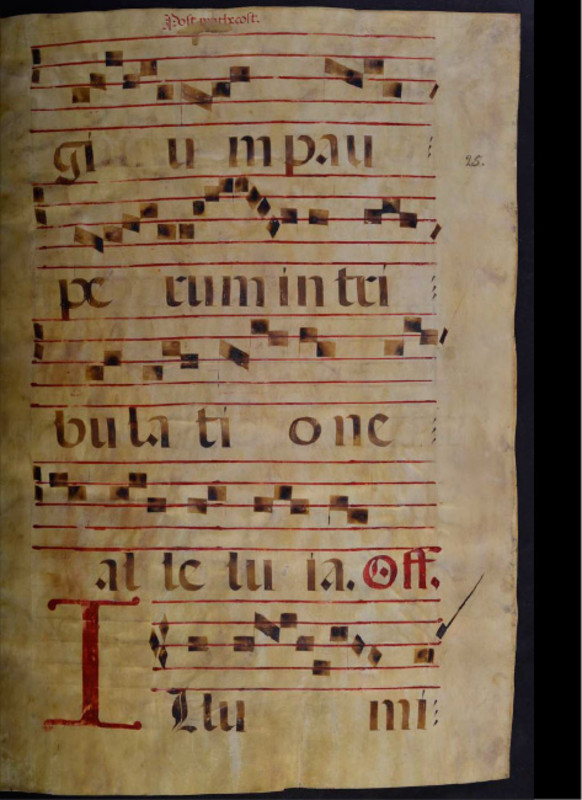 Post pentecost.
gi u m pau
25.
pe rum in tri
bu la ti o ne
al le lu ia. Off.
Illu mi